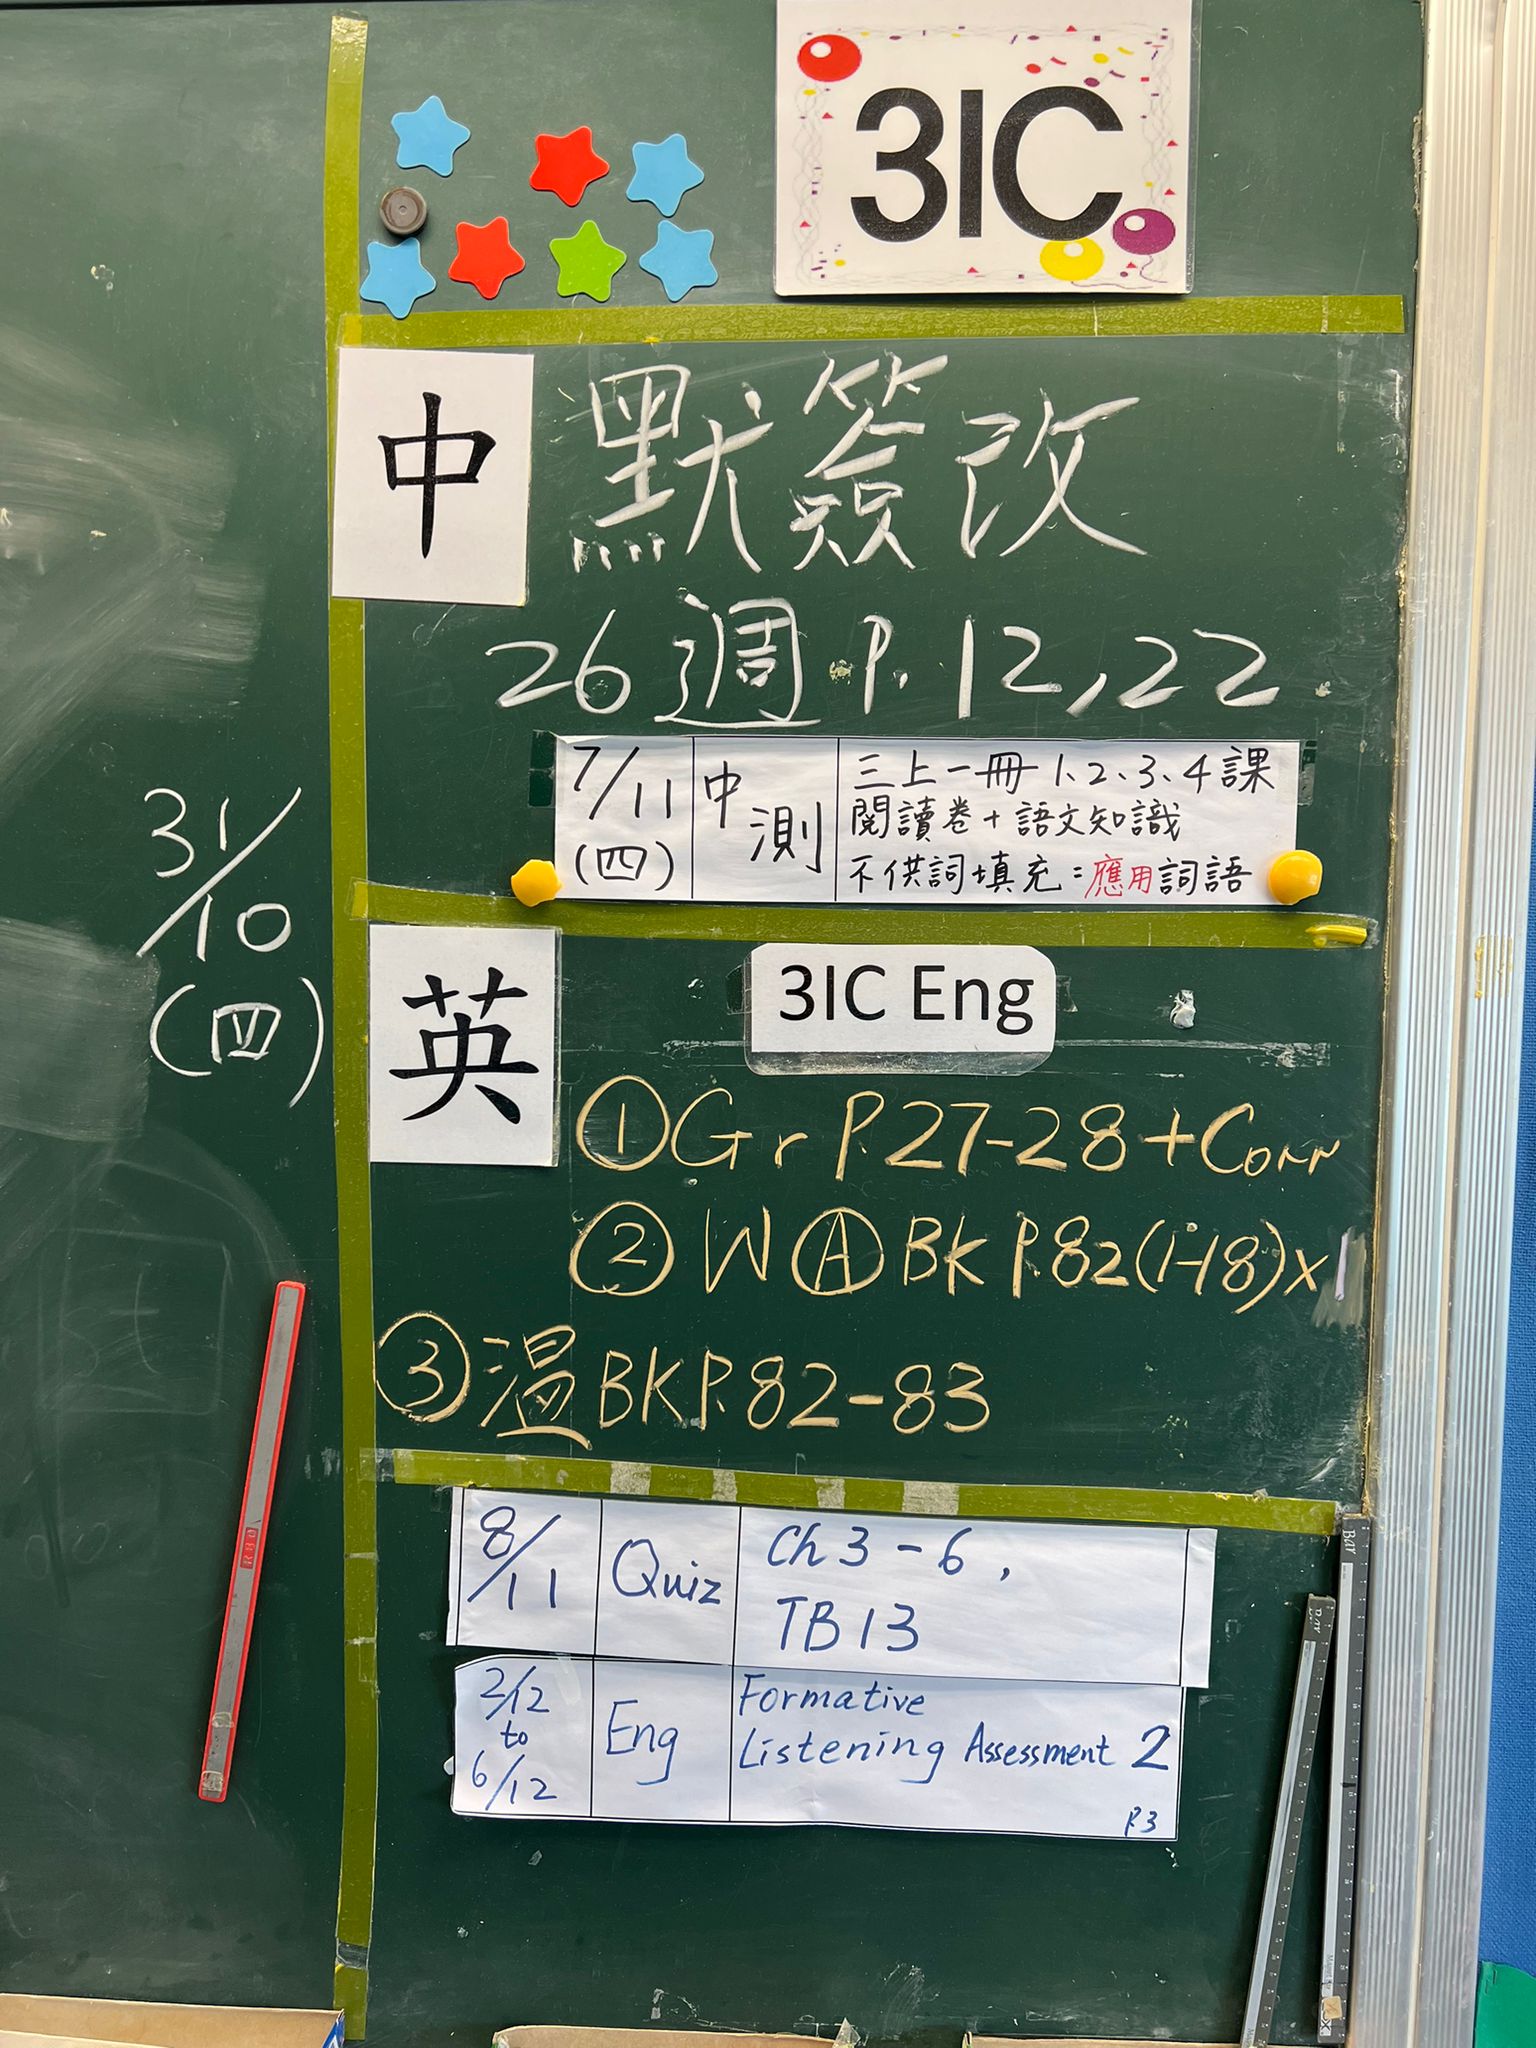 3IC
中
默簽改
26週 P.12,22
31/10
(四)
7/11
(四)
中測
三上一冊 1、2、3、4課
閱讀卷+語文知識
不供詞填充：應用詞語
英
3IC Eng
①Gr P.27-28+Corr
②WⒶBK P.82(1-18)x1
③溫BK P.82-83
8/11
Quiz
Ch 3-6,
TB 13
2/12
to
6/12
Eng
Formative
Listening Assessment 2
P.3